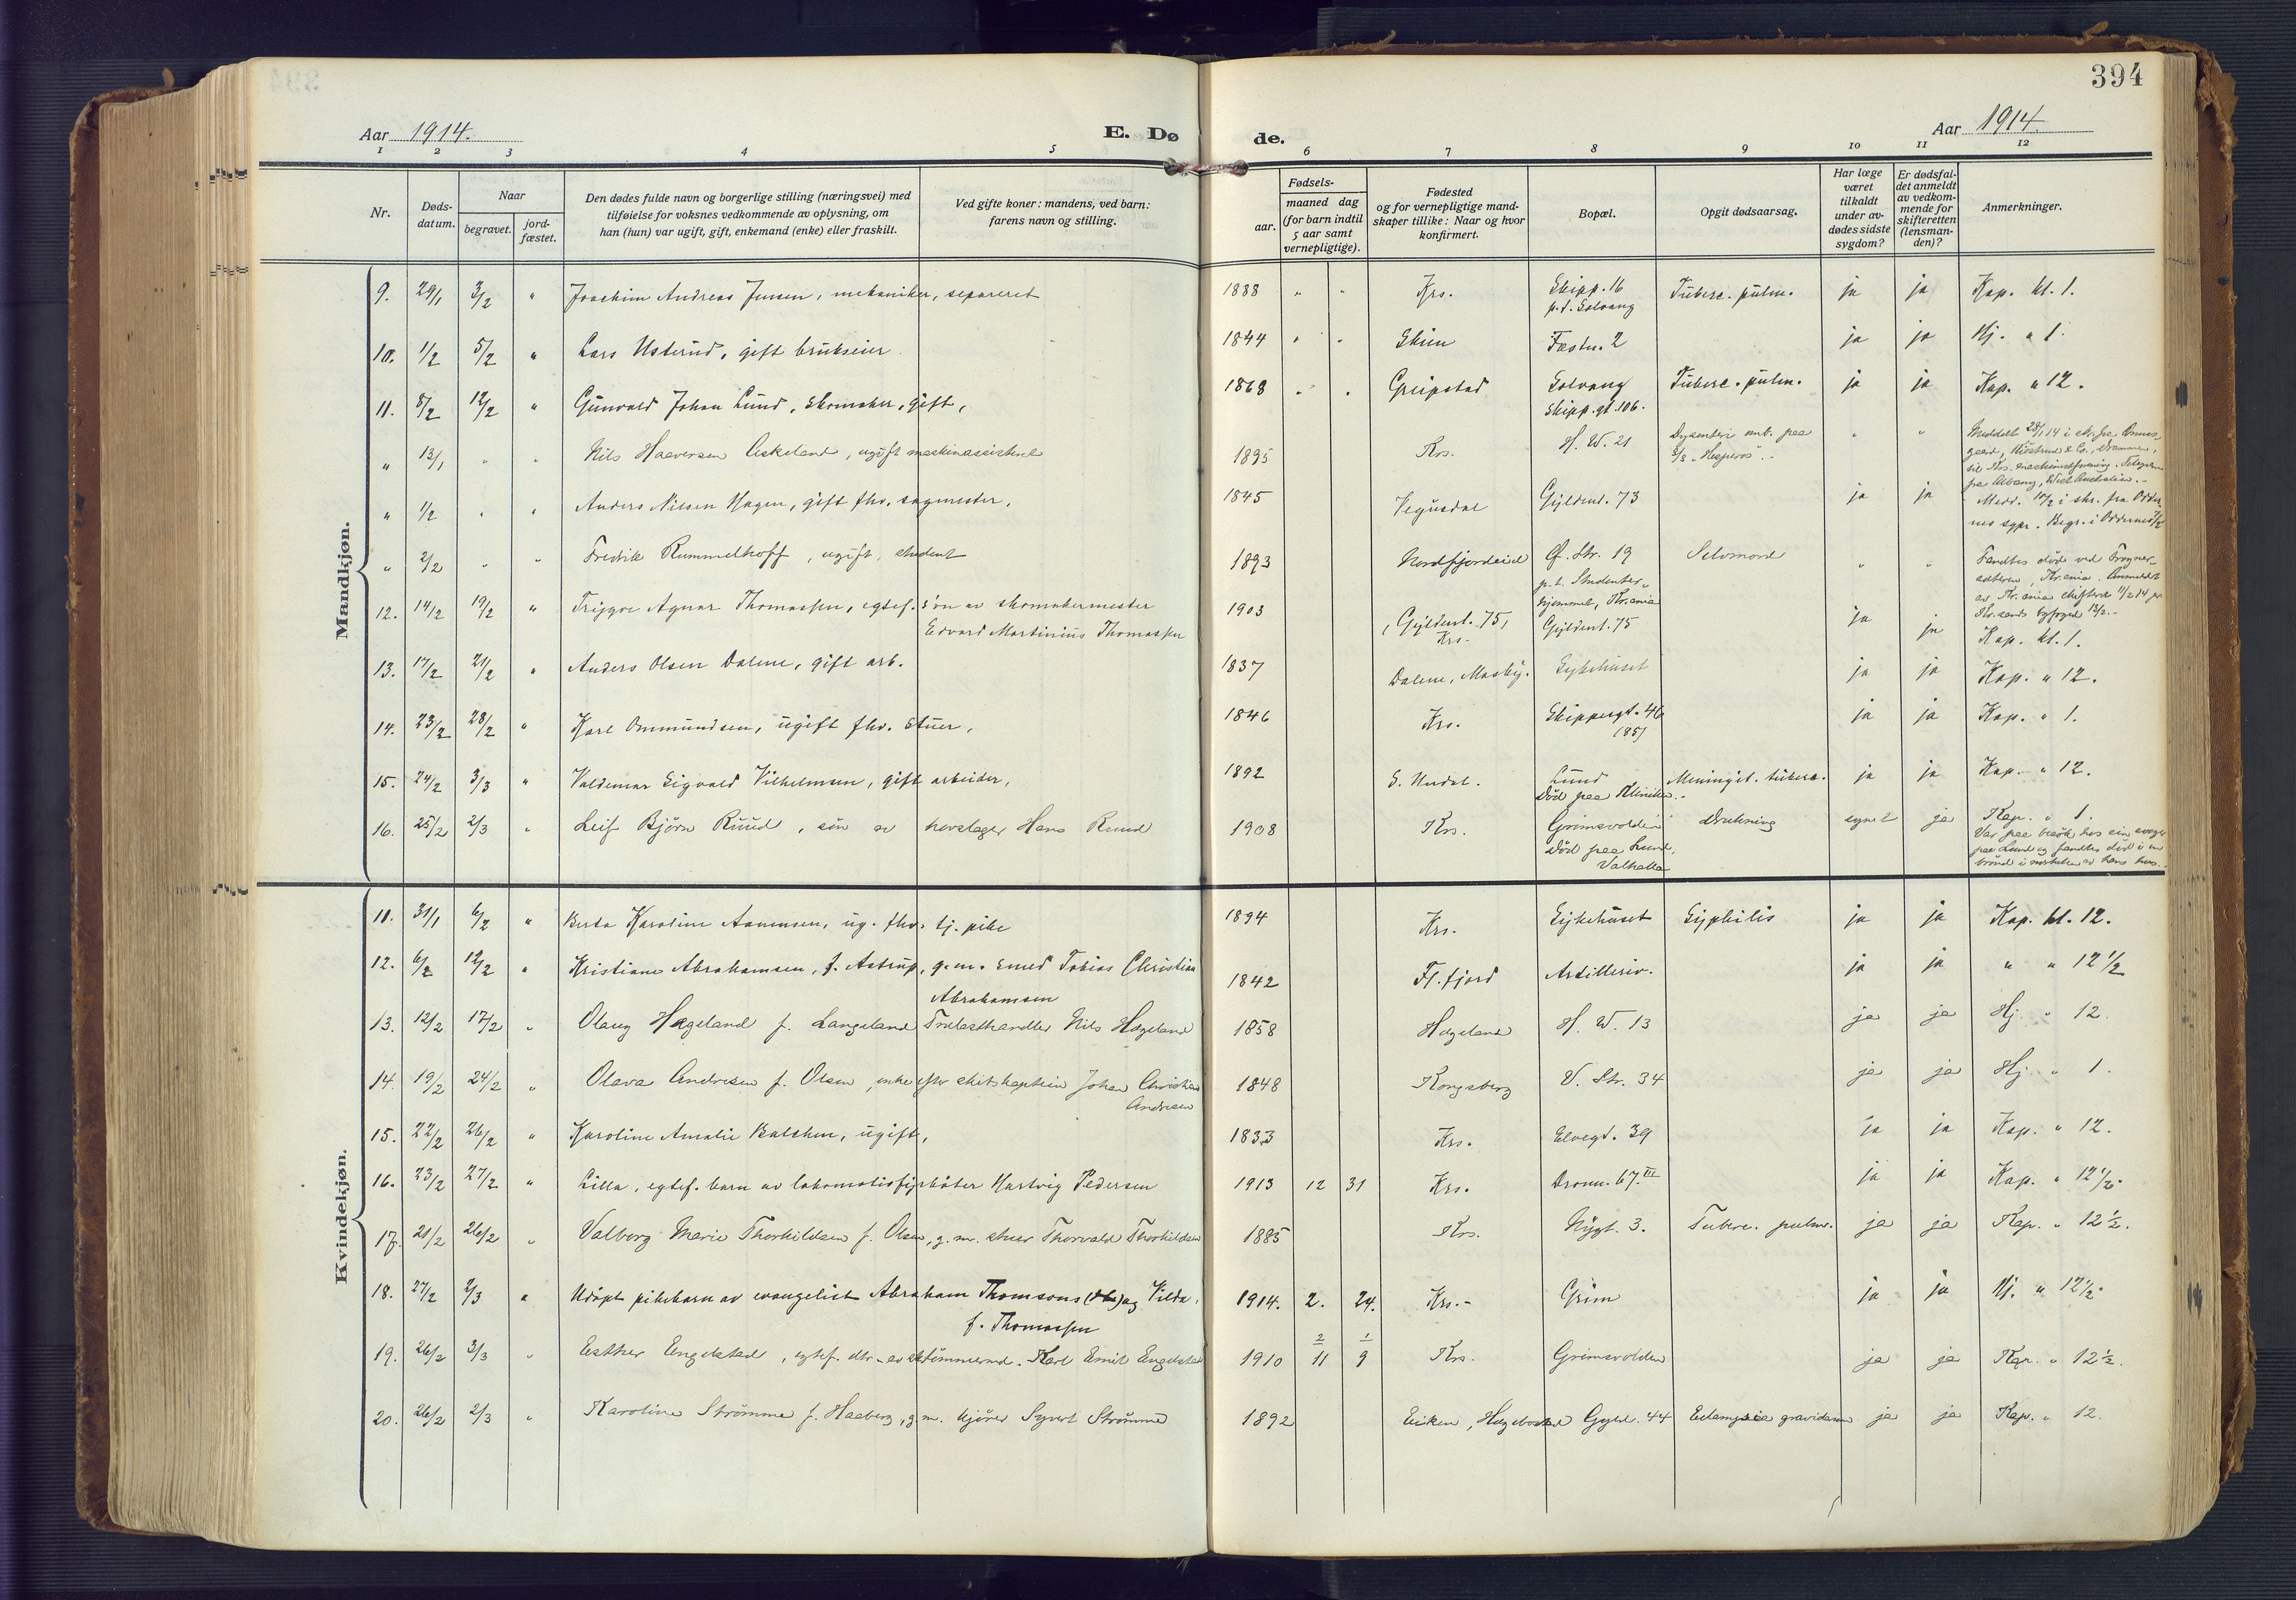 394
Aar 1914. E. Dø de. Aar 1914.
1 2 3 4 5 6 7 8 9 10 11 12
Nr. Døds-datum. Naar begravet. jord-fæstet. Den dødes fulde navn og borgerlige stilling (næringsvei) med tilføielse for voksnes vedkommende av oplysning, om han (hun) var ugift, gift, enkemand (enke) eller fraskilt. Ved gifte koner: mandens, ved barn: farens navn og stilling. Fødsels- aar. maaned dag (for barn indtil 5 aar samt vernepligtige). Fødested og for vernepligtige mand-skaper tillike: Naar og hvor konfirmert. Bopæl. Opgit dødsaarsag. Har læge været tilkaldt under av-dødes sidste sygdom? Er dødsfal-det anmeldt av vedkom-mende for skifteretten (lensman-den)? Anmerkninger.
Mandkjøn.
9. 29/1 3/2 " Joachim Andreas Jensen, mekaniker, separeret 1888 " " Krs. Skipp. 16 Tuberc. pulm. ja ja Kap. kl. 1.
p.t. Solvang
10. 1/2 5/2 " Lars Usterud, gift brukseier 1844 " " Skien Fæstn. 2 ja ja Hj. " 1.
11. 8/2 12/2 " Gunvald Johan Lund, skomaker, gift, 1868 " " Greipstad Solvang Tuberc. pulm. ja ja Kap. " 12.
Skipp.gt. 106.
" 13/1 " " Nils Haaversen Askeland, ugift maskinassistent 1895 Krs. H. W. 21 Dysenteri omb. paa " " Meddelt 28/1 14 i skr. fra
S/S "Hesperos".-
" 1/2 " " Anders Nilsen Hagen, gift fhv. sagmester, 1845 Vegusdal Gyldenl. 73 ja ja Medd. 10/2 i skr. fra Odder-
nes sgpr. Begr. i Oddernes
" 2/2 " " Fredrik Rummelhoff, ugift, student 1893 Nordfjordeid Ø. Str. 19 Selvmord " " Fandtes død ved Frogner-
p.t. Studenter-
hjemmet, Kr.ania
sæteren, Kr.ania. Anmeldt
av Kr.ania skifteret 11/2 14 pr
12. 14/2 19/2 " Trygve Agnar Thomassen, egtef. søn av skomakermester 1903 Gyldenl. 75, Gyldenl. 75 ja ja Kap. kl. 1.
Edvard Martinius Thomassen Krs.
13. 17/2 21/2 " Anders Olsen Dalene, gift arb. 1837 Dalene, Mosby. Sykehuset ja ja Kap. " 12.
14. 23/2 28/2 " Karl Ommundsen, ugift fhv. stuer, 1846 Krs. Skippergt. 46 ja ja Kap. " 1.
(85)
15. 24/2 3/3 " Valdemar Sigvald Vilhelmsen, gift arbeider, 1892 S. Undal. Lund Meningit. tuberc. ja ja Kap. " 12.
Død paa Kliniken.-
16. 25/2 2/3 " Leif Bjørn Ruud, søn av hovslager Hans Ruud 1908 Krs. Grimsvolden Drukning synet ja Kap. " 1.
Død paa Lund, Valhalla
Var paa besøk hos sin svoger
paa Lund og fandtes død i en
brønd i nærheten av hans hus.
Kvindekjøn.
11. 31/1 6/2 " Berta Karoline Aanensen, ug. fhv. tj. pike 1894 Krs. Sykehuset Syphilis ja ja Kap. kl. 12.
12. 6/2 12/2 " Kristiane Abrahamsen, f. Astrup, g.m. smed Tobias Christian 1842 Fl.fjord Artilleriv. ja ja " " 12 1/2
Abrahamsen
13. 12/2 17/2 " Olaug Hægeland f. Langeland Trælasthandler Nils Hægeland 1858 Hægeland H. W. 13 ja ja Hj. " 12.
14. 19/2 24/2 " Olava Andresen f. Olsen, enke efter skibskaptein Johan Christian 1848 Kongsberg V. Str. 34 ja ja Hj. " 1.
Andresen
15. 22/2 26/2 " Karoline Amalie Balchen, ugift, 1833 Krs. Elvegt. 39 ja ja Kap. " 12.
16. 23/2 27/2 " Lilla, egtef. barn av lokomotivfyrbøter Hartvig Pedersen 1913 12 31 Krs. Dronn. 67. III ja ja Kap. " 12 1/2.
17. 21/2 26/2 " Valborg Marie Thorkildsen f. Olsen, g. m. stuer Thorvald Thorkildsen 1885 Krs. Nygt. 3. Tuberc. pulm. ja ja Kap. " 12 1/2.
18. 27/2 2/3 " Udøpt pikebarn av evangelist Abraham Thomsons og Vilda, 1914. 2. 24. Krs.- Grim ja ja Hj. " 12 1/2.
f. Thomassen
19. 26/2 3/3 " Esther Engelstad, egtef. dtr. av tømmermd. Karl Emil Engelstad 1910 2/11 1/9 Krs. Grimsvolden ja ja Kap. " 12 1/2.
20. 26/2 2/3 " Karoline Strømme f. Haaberg, g.m. kjører Syvert Strømme 1892 Eiken, Hægebostad Gyld. 44 Eclampsia gravidarum ja ja Kap. " 12.